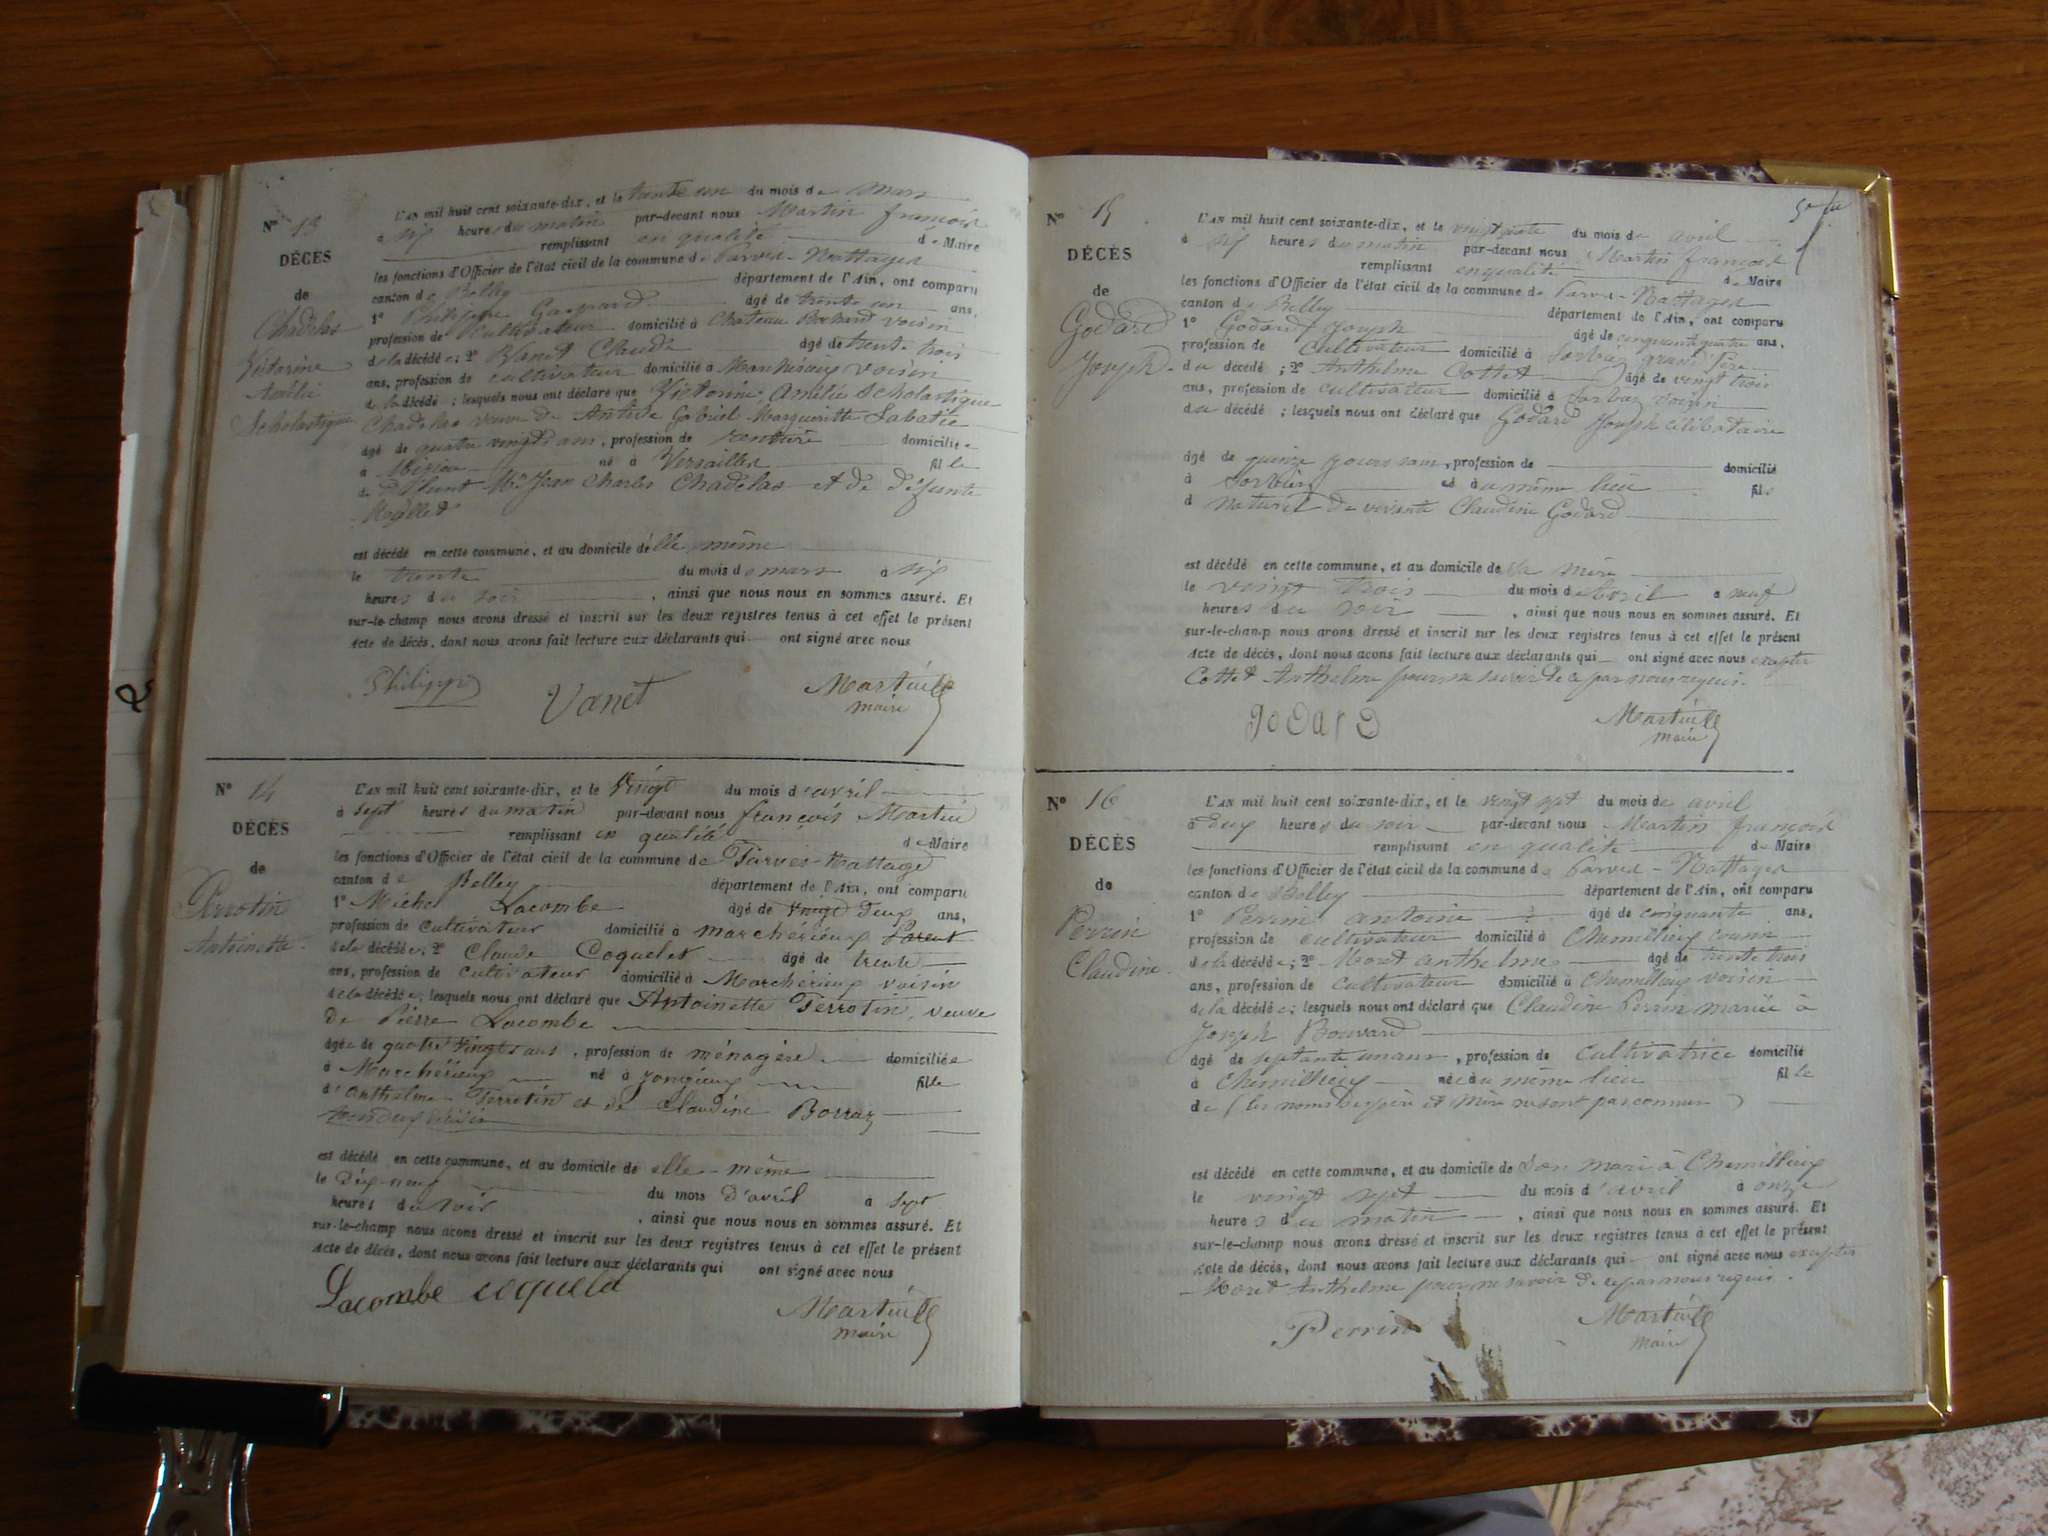 Nº 13
DÉCÈS
de
Chadelas
Victorine
Amélie
Scholastique
L'AN mil huit cent soixante-dix, et le trente un du mois de Mars
à six heures du matin par-devant nous Martin françois
remplissant en qualité de Maire
les fonctions d'Officier de l'état civil de la commune de Parves-Nattages
canton de Belley département de l'Ain, ont comparu
1º Philippe Gaspard âgé de trente un ans,
profession de Cultivateur domicilié à Chateau Bochard voisin
de la décédée; 2º Vanet Claude âgé de trente trois
ans, profession de cultivateur domicilié à Marchérieux voisin
de la décédé; lesquels nous ont déclaré que Victorine Amélie Scholastique
Chadelas veuve de Gabriel Margueritte Labatie
âgé de quatre vingts ans, profession de rentière domiciliée
à né à Versailles fille
de défunt Mr Jean Charles Chadelas et de défunte
est décédé en cette commune, et au domicile d'elle même
le trente du mois de mars à six
heures du soir, ainsi que nous nous en sommes assuré. Et
sur-le-champ nous avons dressé et inscrit sur les deux registres tenus à cet effet le présent
Acte de décès, dont nous avons fait lecture aux déclarants qui ont signé avec nous
Philippe Vanet Martin
maire
Nº 14
DÉCÈS
de
Perrotin
Antoinette
L'AN mil huit cent soixante-dix, et le vingt du mois d'avril
à sept heures du matin par-devant nous françois Martin
remplissant en qualité de Maire
les fonctions d'Officier de l'état civil de la commune de Parves-Nattage
canton de Belley département de l'Ain, ont comparu
1º Michel Lacombe âgé de vingt deux ans,
profession de cultivateur domicilié à marchérieux Parent
de la décédée; 2º Claude Coquelet âgé de trente
ans, profession de cultivateur domicilié à Marchérieux voisin
de la décédée; lesquels nous ont déclaré que Antoinette Perrotin, veuve
de Pierre Lacombe
âgée de quatre vingts ans, profession de ménagère domiciliée
à Marchérieux né à jongieux fille
d'anthelme Perrotin et de Claudine Borraz
est décédé en cette commune, et au domicile de elle-même
le dix-neuf du mois d'avril à sept
heures du soir, ainsi que nous nous en sommes assuré. Et
sur-le-champ nous avons dressé et inscrit sur les deux registres tenus à cet effet le présent
Acte de décès, dont nous avons fait lecture aux déclarants qui ont signé avec nous
Lacombe coquelet Martin
maire
Nº 15
DÉCÈS
de
Godard
Joseph
L'AN mil huit cent soixante-dix, et le du mois de avril
à six heures du matin par-devant nous Martin françois
remplissant en qualité de Maire
les fonctions d'Officier de l'état civil de la commune de Parves-Nattages
canton de Belley département de l'Ain, ont comparu
1º Godard Joseph âgé de cinquante quatre ans,
profession de Cultivateur domicilié à Sorbaz grand Père
du décédé; 2º Anthelme Cottet âgé de vingt trois
ans, profession de cultivateur domicilié à Sorbaz voisin
du décédé; lesquels nous ont déclaré que Godard Joseph célibataire
âgé de quinze jours, profession de domicilié
à né au même lieu fils
naturel de vivante Claudine Godard
est décédé en cette commune, et au domicile de sa mère
le vingt trois du mois d'Avril à neuf
heures du soir, ainsi que nous nous en sommes assuré. Et
sur-le-champ nous avons dressé et inscrit sur les deux registres tenus à cet effet le présent
Acte de décès, dont nous avons fait lecture aux déclarants qui ont signé avec nous excepter
Cottet Anthelme pour ne savoir de ce par nous requis.
godard Martin
maire
Nº 16
DÉCÈS
de
Perrin
Claudine
L'AN mil huit cent soixante-dix, et le vingt sept du mois de avril
à deux heures du soir par-devant nous Martin françois
remplissant en qualité de Maire
les fonctions d'Officier de l'état civil de la commune de Parves-Nattages
canton de Belley département de l'Ain, ont comparu
1º Perrin antoine âgé de cinquante ans,
profession de cultivateur domicilié à Chemillieux cousin
de la décédée; 2º Moret anthelme âgé de trente trois
ans, profession de cultivateur domicilié à Chemillieux voisin
de la décédée; lesquels nous ont déclaré que Claudine Perrin mariée à
Joseph Bouvard
âgé de septante un ans, profession de cultivatrice domicilié
à Chemillieux née au même lieu fille
de (les noms des père et Mère ne sont pas connus)
est décédé en cette commune, et au domicile de son mari à Chemillieux
le vingt sept du mois d'avril à onze
heures du matin, ainsi que nous nous en sommes assuré. Et
sur-le-champ nous avons dressé et inscrit sur les deux registres tenus à cet effet le présent
Acte de décès, dont nous avons fait lecture aux déclarants qui ont signé avec nous excepter
Moret Anthelme pour ne savoir de ce par nous requis.
Perrin Martin
maire